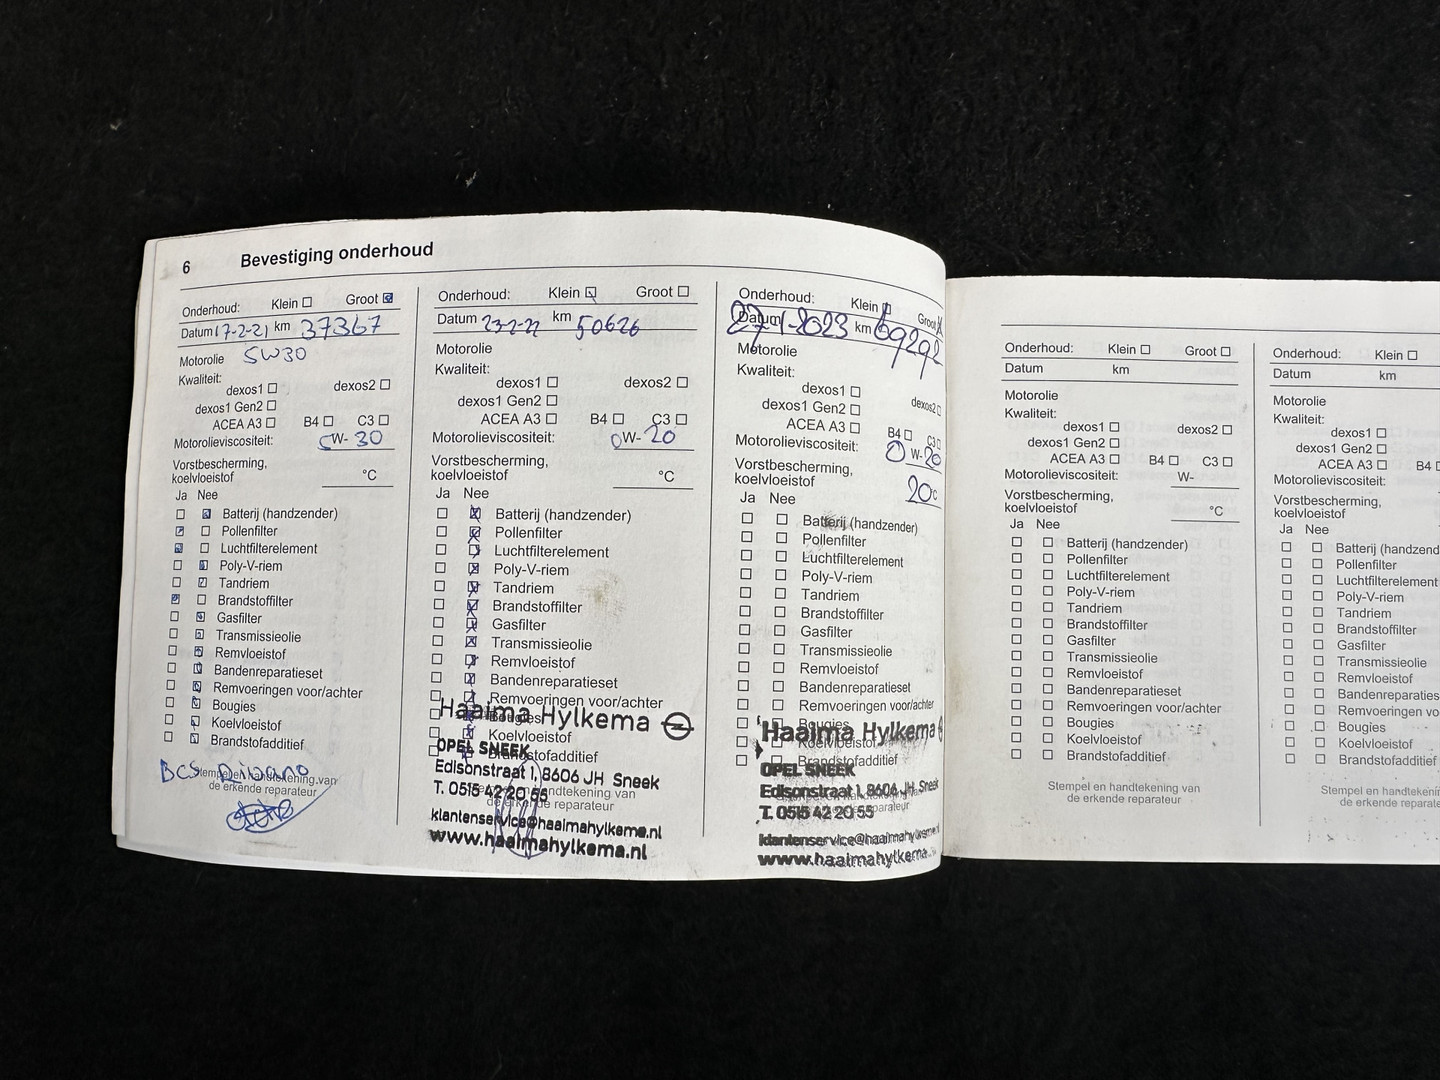 6 Bevestiging onderhoud
Onderhoud: Klein Groot
Datum 17-2-21 km 37367
Motorolie 5W30
Kwaliteit:
dexos1 dexos2
dexos1 Gen2
ACEA A3 B4 C3
Motorolieviscositeit: 5W-30
Vorstbescherming,
koelvloeistof °C
Ja Nee
Batterij (handzender)
Pollenfilter
Luchtfilterelement
Poly-V-riem
Tandriem
Brandstoffilter
Gasfilter
Transmissieolie
Remvloeistof
Bandenreparatieset
Remvoeringen voor/achter
Bougies
Koelvloeistof
Brandstofadditief
Stempel en handtekening van
de erkende reparateur
Onderhoud: Klein Groot
Datum 23-2-22 km 50626
Motorolie
Kwaliteit:
dexos1 dexos2
dexos1 Gen2
ACEA A3 B4 C3
Motorolieviscositeit: 0W-20
Vorstbescherming,
koelvloeistof °C
Ja Nee
Batterij (handzender)
Pollenfilter
Luchtfilterelement
Poly-V-riem
Tandriem
Brandstoffilter
Gasfilter
Transmissieolie
Remvloeistof
Bandenreparatieset
Remvoeringen voor/achter
Bougies
Koelvloeistof
Brandstofadditief
Haaima Hylkema
OPEL SNEEK
Edisonstraat 1, 8606 JH Sneek
T. 0515 42 20 55
klantenservice@haaimahylkema.nl
www.haaimahylkema.nl
handtekening van
de erkende reparateur
Onderhoud: Klein Groot
Datum 27-1-2023 km 69292
Motorolie
Kwaliteit:
dexos1 dexos2
dexos1 Gen2
ACEA A3 B4 C3
Motorolieviscositeit: 0W-20
Vorstbescherming,
koelvloeistof 20°C
Ja Nee
Batterij (handzender)
Pollenfilter
Luchtfilterelement
Poly-V-riem
Tandriem
Brandstoffilter
Gasfilter
Transmissieolie
Remvloeistof
Bandenreparatieset
Remvoeringen voor/achter
Bougies
Koelvloeistof
Brandstofadditief
Haaima Hylkema
OPEL SNEEK
Edisonstraat 1, 8606 JH Sneek
T. 0515 42 20 55
klantenservice@haaimahylkema.
www.haaimahylkema.
Onderhoud: Klein Groot
Datum km
Motorolie
Kwaliteit:
dexos1 dexos2
dexos1 Gen2
ACEA A3 B4 C3
Motorolieviscositeit: W-
Vorstbescherming,
koelvloeistof °C
Ja Nee
Batterij (handzender)
Pollenfilter
Luchtfilterelement
Poly-V-riem
Tandriem
Brandstoffilter
Gasfilter
Transmissieolie
Remvloeistof
Bandenreparatieset
Remvoeringen voor/achter
Bougies
Koelvloeistof
Brandstofadditief
Stempel en handtekening van
de erkende reparateur
Onderhoud: Klein
Datum km
Motorolie
Kwaliteit:
dexos1
dexos1 Gen2
ACEA A3 B4
Motorolieviscositeit:
Vorstbescherming,
koelvloeistof
Ja Nee
Batterij (handzend
Pollenfilter
Luchtfilterelement
Poly-V-riem
Tandriem
Brandstoffilter
Gasfilter
Transmissieolie
Remvloeistof
Bandenreparaties
Remvoeringen vo
Bougies
Koelvloeistof
Brandstofadditief
Stempel en handtekenin
de erkende reparate